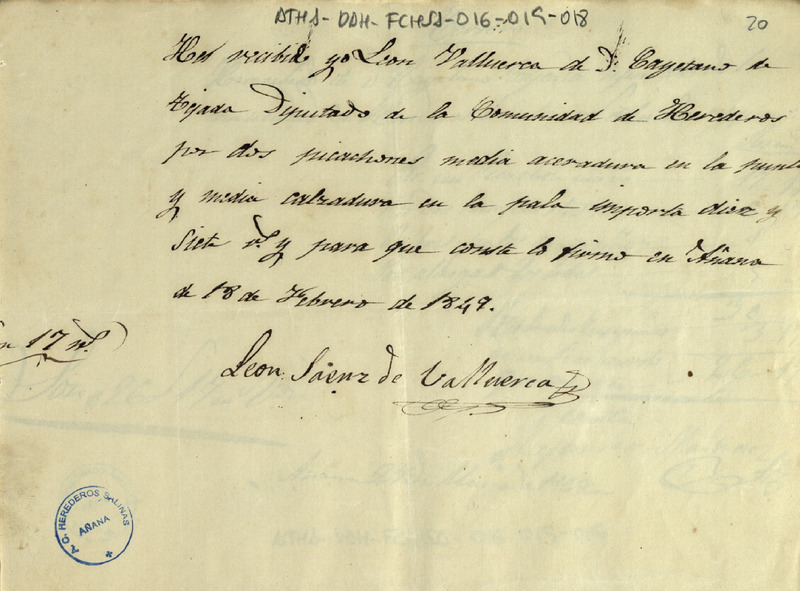 ATHA-DAH-FCHSA-016-019-018
20
He recibido yo Leon Valluerca de Dn. Cayetano de
Tejada Diputado de la Comunidad de Herederos
por dos picachones media aceradura en la punta
y media calzadura en la pala importa diez y
siete rs. y para que conste lo firmo en Añana
de 18 de Febrero de 1849.
n 17 rs.
Leon Sáenz de Valluerca
A. C. HEREDEROS SALINAS
AÑANA